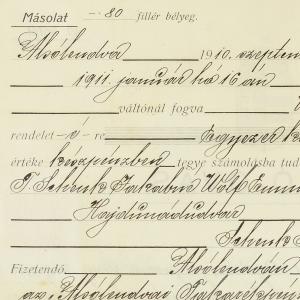 Másolat -80 fillér bélyeg.
Alsólendva 1910. szeptem
1911. január hó 16 án
váltónál fogva
rendelet -é- re Egyezer k
értéke készpénzben tegye számolásba tud
T. Schenk Jakabné Wolf Emm
Hajdunádudvar
Schenk
Fizetendő Alsólendván
az Alsólendvai Takarékt